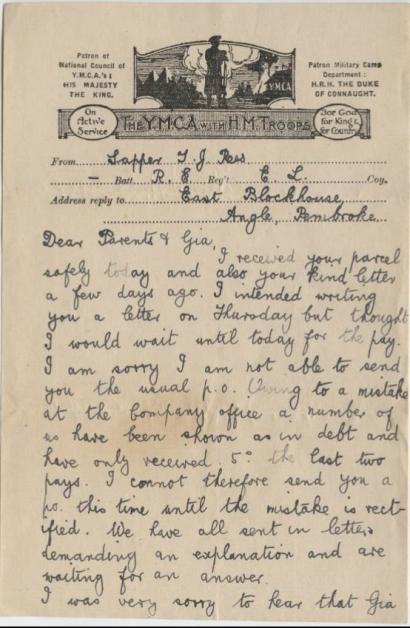 Patron of
National Council of
Y.M.C.A.'s:
HIS MAJESTY
THE KING.
On
Active
Service
YMCA
Patron Military Camp
Department:
H.R.H. THE DUKE
OF CONNAUGHT.
For God
for King &
for Country
THE Y.M.C.A. WITH H.M. TROOPS
From Sapper T. J. Rees
— Batt. R. E. Reg't E L. Coy.
Address reply to East Blockhouse
Angle, Pembroke
Dear Parents & Gia,
I received your parcel
safely today and also your kind letter
a few days ago. I intended writing
you a letter on Thursday but thought
I would wait until today for the pay.
I am sorry I am not able to send
you the usual p.o. Owing to a mistake
at the Company office a number of
us have been shown as in debt and
have only received 5s the last two
pays. I cannot therefore send you a
po. this time until the mistake is rect-
ified. We have all sent in letters
demanding an explanation and are
waiting for an answer.
I was very sorry to hear that Gia